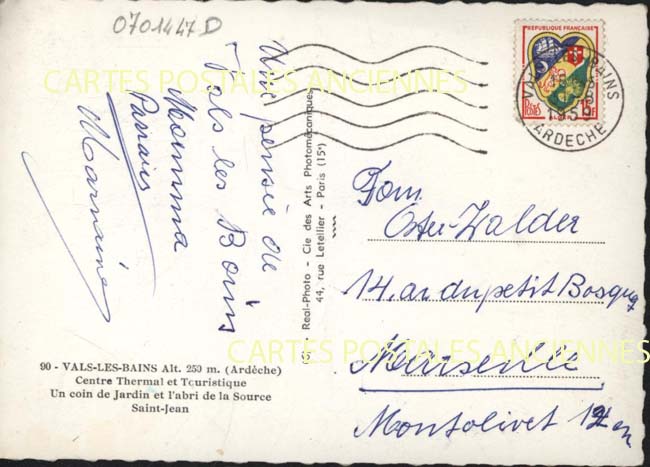 0701447D
Une pensée de
Vals les Bains
Mamma
Parrain
Marraine
90 - VALS-LES-BAINS Alt. 250 m. (Ardèche)
Centre Thermal et Touristique
Un coin de Jardin et l'abri de la Source
Saint-Jean
Real-Photo - Cie des Arts Photomécaniques
44, rue Letellier - Paris (15e)
RÉPUBLIQUE FRANÇAISE
POSTES
15F
VALS BAINS
ARDECHE
Fam
Oster-Walder
14. av du petit Bosquet
Marseille
Montolivet 12 em
CARTES POSTALES ANCIENNES
CARTES POSTALES ANCIENNES